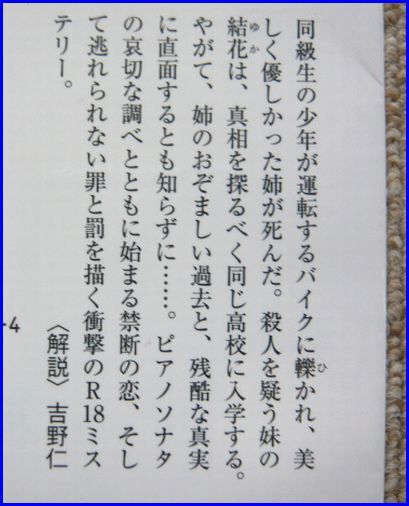 同級生の少年が運転するバイクに轢かれ、美
しく優しかった姉が死んだ。殺人を疑う妹の
結花は、真相を探るべく同じ高校に入学する。
やがて、姉のおぞましい過去と、残酷な真実
に直面するとも知らずに……。ピアノソナタ
の哀切な調べとともに始まる禁断の恋、そし
て逃れられない罪と罰を描く衝撃のR18ミス
テリー。
〈解説〉吉野仁
ひ
ゆか
-4